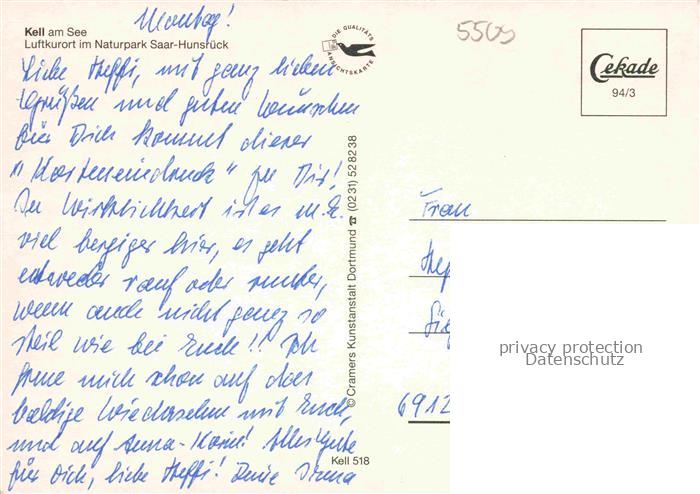 Montag!
Kell am See
Luftkurort im Naturpark Saar-Hunsrück
Liebe Steffi, mit ganz lieben
Grüßen und guten Wünschen
für Dich kommt dieser
"Karteneindruck" zu Dir!
In Wirklichkeit ist es m. E.
viel bergiger hier, es geht
entweder rauf oder runter,
wenn auch nicht ganz so
steil wie bei Euch!! Ich
freue mich schon auf das
baldige Wiedersehen mit Euch,
und auf Anna-! Alles Gute
für Dich, liebe Steffi! Deine Irena
DIE QUALITÄTS ANSICHTSKARTE
© Cramers Kunstanstalt Dortmund ☎ (0231) 528238
Kell 518
5509
Cekade
94/3
Frau
6912
privacy protection
Datenschutz